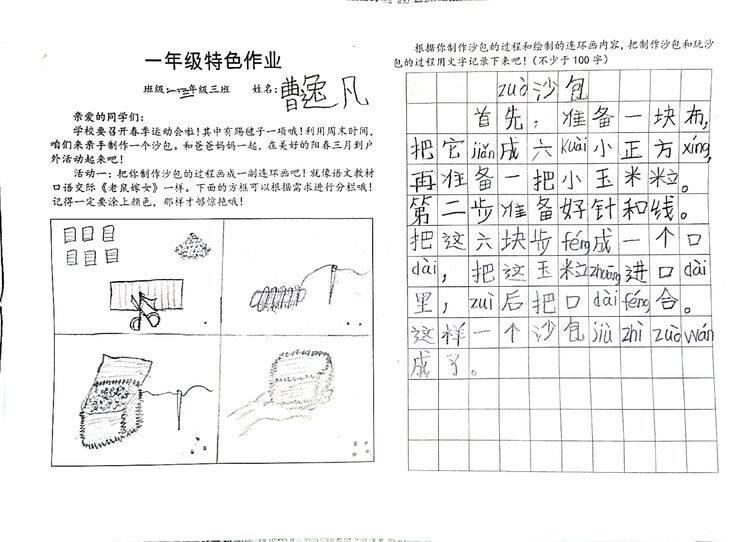 一年级特色作业
班级:一年级三班 姓名:曹逸凡
亲爱的同学们:
学校要召开春季运动会啦!其中有踢毽子一项哦!利用周末时间,
咱们来亲手制作一个沙包。和爸爸妈妈一起,在美好的阳春三月到户
外活动起来吧!
活动一:把你制作沙包的过程画成一副连环画吧!就像语文教材
口语交际《老鼠嫁女》一样。下面的方框可以根据需求进行分栏哦!
记得一定要涂上颜色,那样才够惊艳哦!
根据你制作沙包的过程和绘制的连环画内容,把制作沙包和玩沙
包的过程用文字记录下来吧!(不少于100字)
zuò沙包
首先,准备一块布,
把它jiǎn成六kuài小正方xíng,
再准备一把小玉米粒。
第二步准备好针和线。
把这六块步féng成一个口
dài,把这玉米粒zhuāng进口dài
里,zuì后把口dài féng合。
这样一个沙包jiù zhì zuò wán
成了。